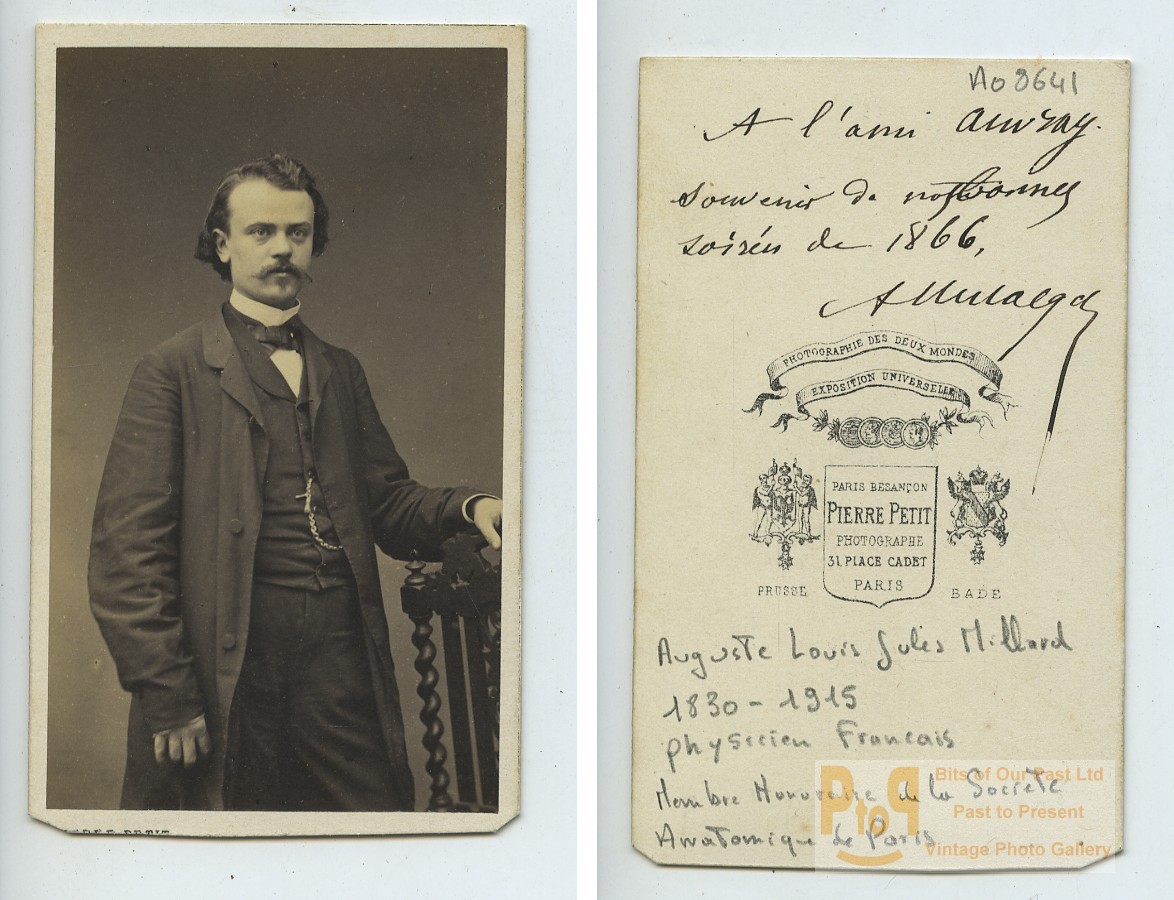 PIERRE PETIT
No 8641
A l'ami Auvray.
souvenir de nos bonnes
soirées de 1866,
PHOTOGRAPHIE DES DEUX MONDES
EXPOSITION UNIVERSELLE
PARIS BESANÇON
PIERRE PETIT
PHOTOGRAPHE
31 PLACE CADET
PARIS
PRUSSE
BADE
Auguste Louis Jules Millard
1830 - 1915
physicien Francais
Membre Honoraire de la Société
Anatomique de Paris
PtoP
Bits of Our Past Ltd
Past to Present
Vintage Photo Gallery